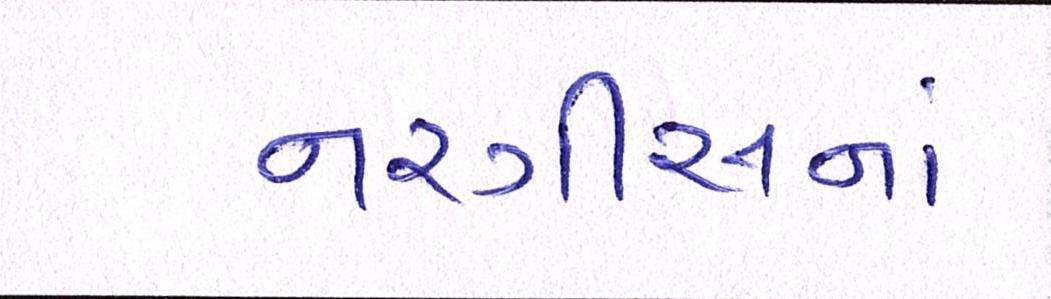 નરગીસનાં